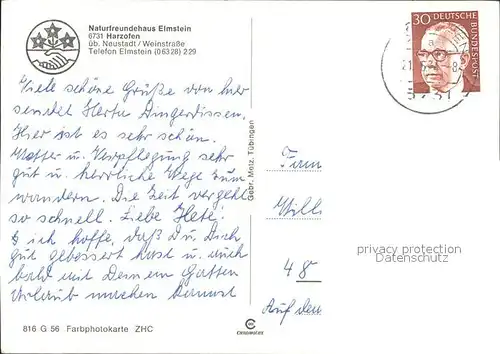 Naturfreundehaus Elmstein
6731 Harzofen
üb. Neustadt / Weinstraße
Telefon Elmstein (06328) 229
30 DEUTSCHE BUNDESPOST
Viele schöne Grüße von hier
sendet Herta Dingerdissen.
Hier ist es sehr schön.
Wetter u. Verpflegung sehr
gut u. herrliche Wege zum
wandern. Die Zeit vergeht
so schnell. Liebe
ich hoffe, daß Du Dich
gut gebessert hast u. auch
bald mit Deinem Gatten
Urlaub machen kannst
Gebr. Metz, Tübingen
Willi
48
Auf dem
privacy protection
Datenschutz
816 G 56 Farbphotokarte ZHC